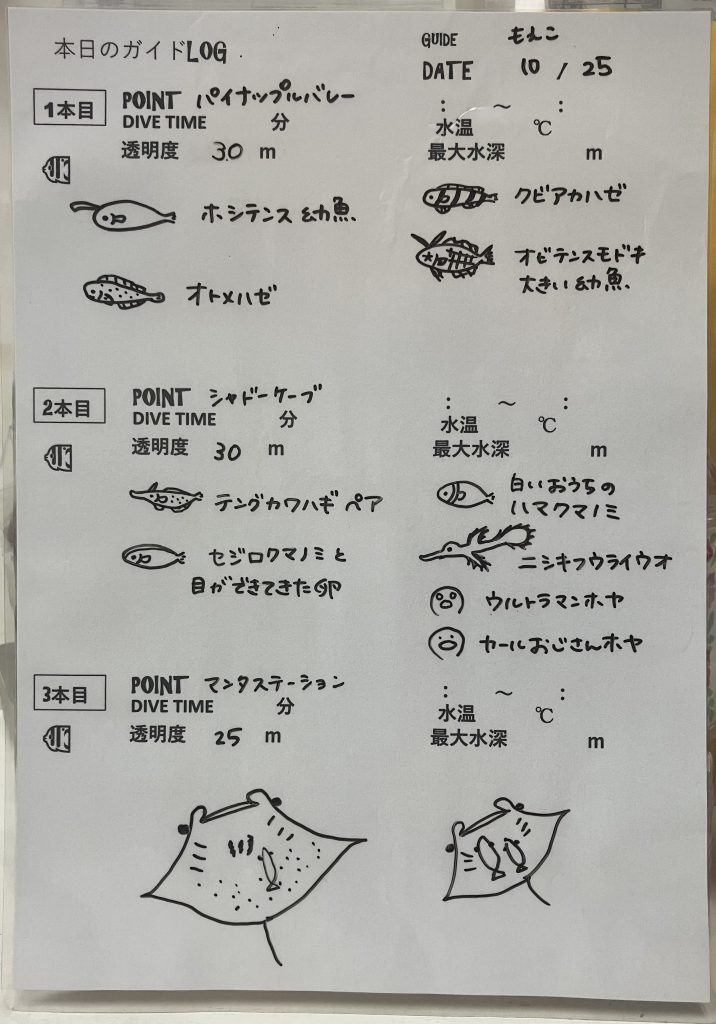 本日のガイドLOG
GUIDE もえこ
DATE 10 / 25
1本目
POINT パイナップルバレー
: ～ :
DIVE TIME 分
水温 ℃
透明度 30 m
最大水深 m
ホシテンス 幼魚、
クビアカハゼ
オトメハゼ
オビテンスモドキ
大きい幼魚、
2本目
POINT シャドーケーブ
: ～ :
DIVE TIME 分
水温 ℃
透明度 30 m
最大水深 m
テングカワハギ ペア
白いおうちの
ハマクマノミ
セジロクマノミと
目ができてきた卵
ニシキフウライウオ
ウルトラマンホヤ
カールおじさんホヤ
3本目
POINT マンタステーション
: ～ :
DIVE TIME 分
水温 ℃
透明度 25 m
最大水深 m